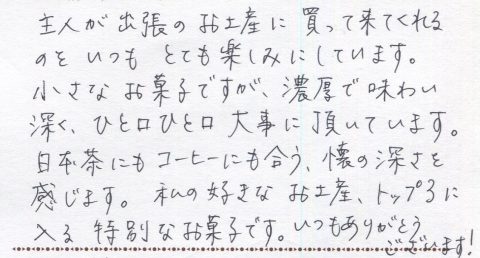 主人が出張のお土産に買って来てくれる
のをいつもとても楽しみにしています。
小さなお菓子ですが、濃厚で味わい
深く、ひと口ひと口大事に頂いています。
日本茶にもコーヒーにも合う、懐の深さを
感じます。私の好きなお土産、トップ3に
入る特別なお菓子です。いつもありがとう
ございます!